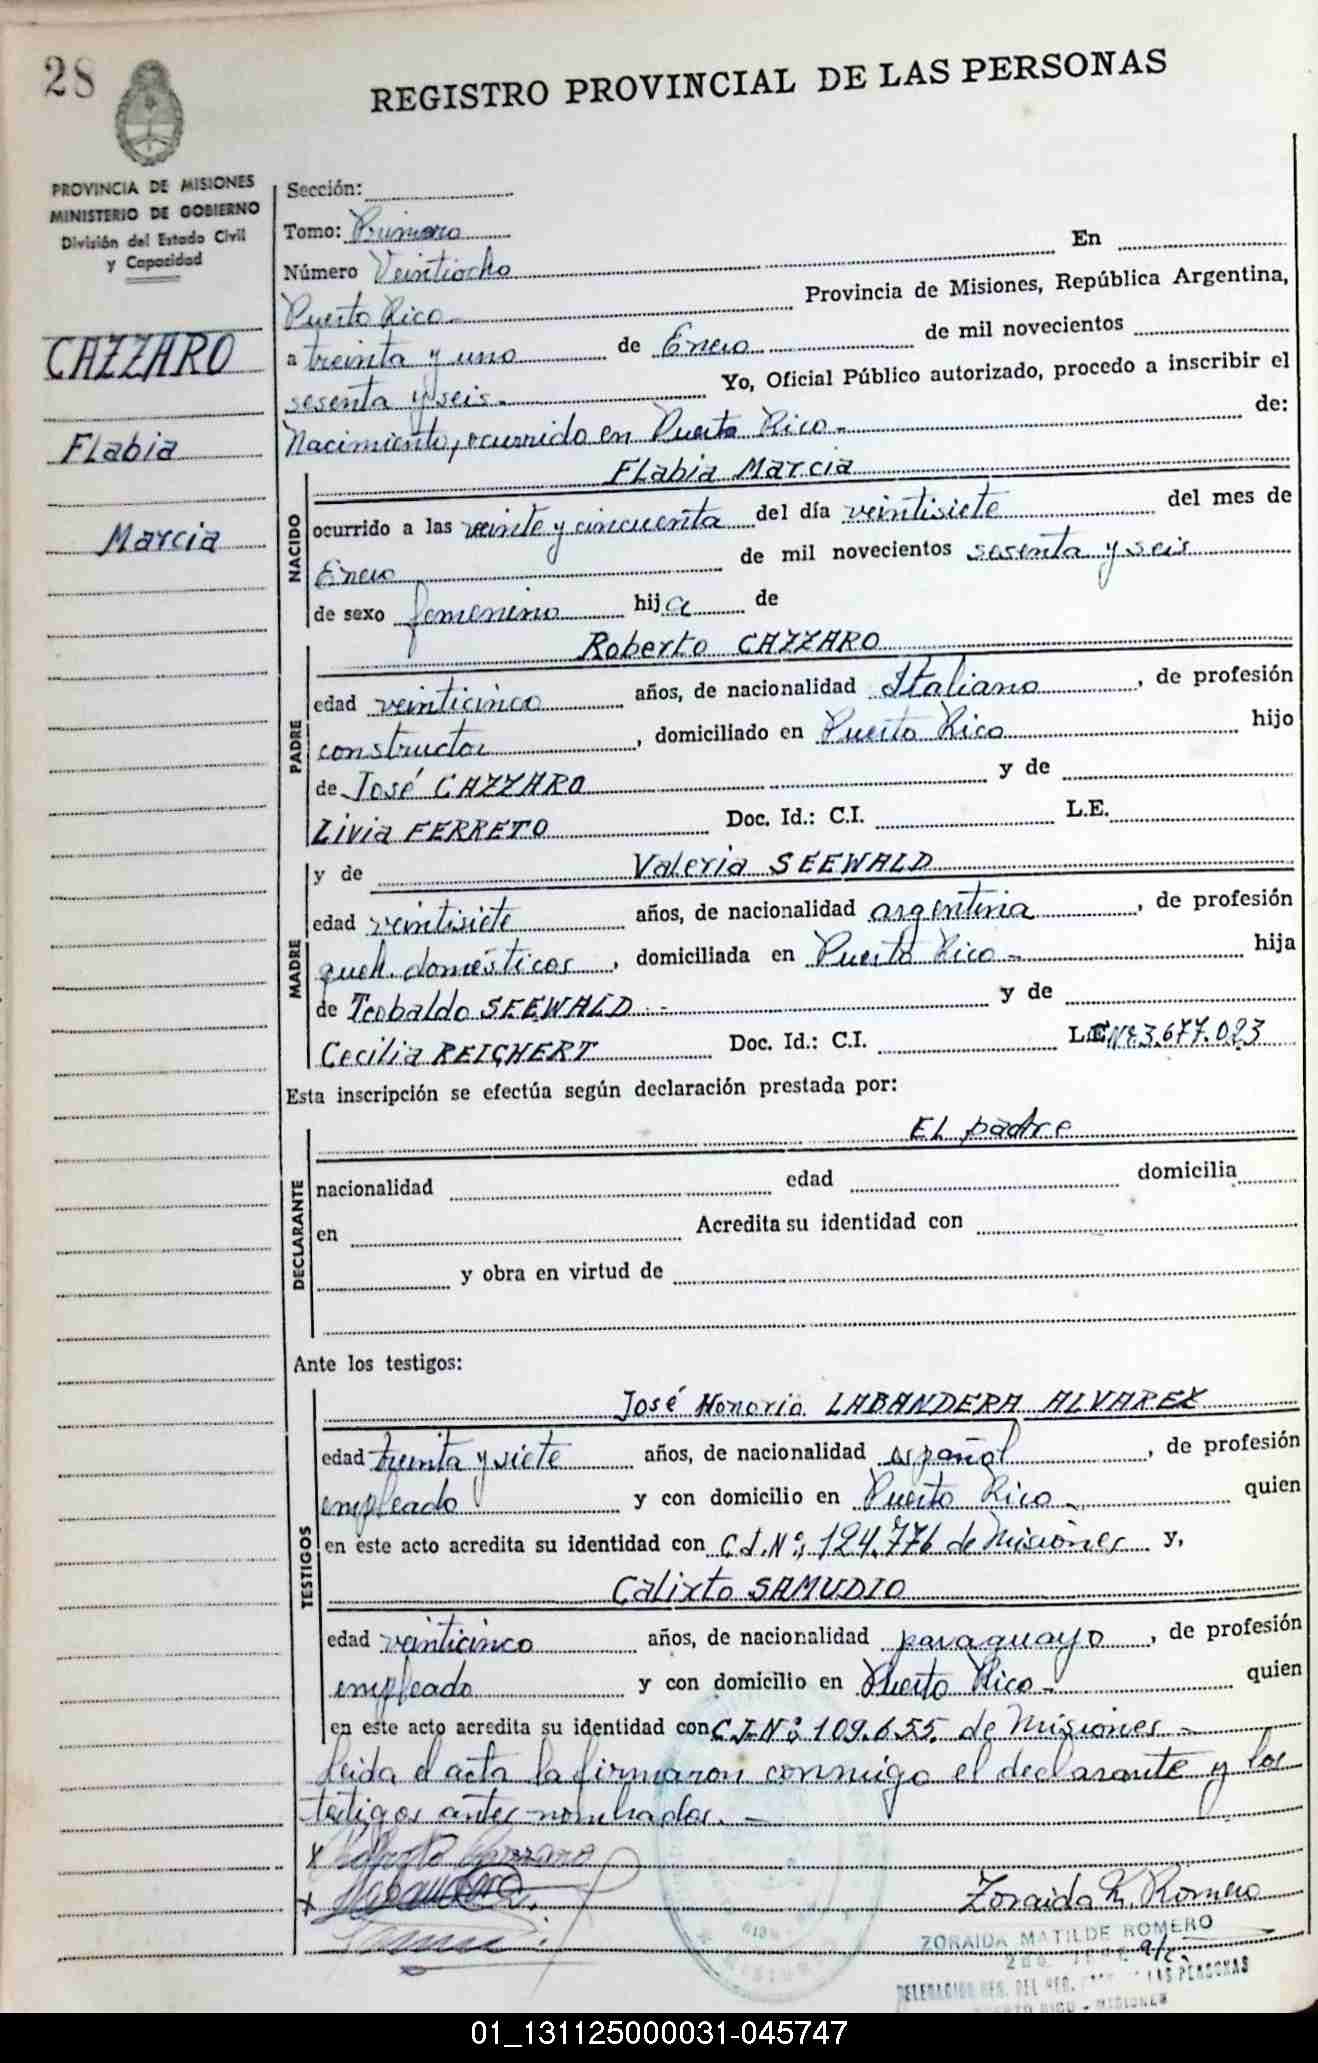 28
REGISTRO PROVINCIAL DE LAS PERSONAS
PROVINCIA DE MISIONES
MINISTERIO DE GOBIERNO
División del Estado Civil
y Capacidad
CAZZARO
Flabia
Marcia
Sección:
Tomo: Primero
Número Veintiocho En
Puerto Rico.- Provincia de Misiones, República Argentina,
a treinta y uno de Enero de mil novecientos
sesenta y seis.- Yo, Oficial Público autorizado, procedo a inscribir el
Nacimiento, ocurrido en Puerto Rico.- de:
NACIDO
Flabia Marcia
ocurrido a las veinte y cincuenta del día veintisiete del mes de
Enero de mil novecientos sesenta y seis
de sexo femenino hija de
PADRE
Roberto CAZZARO
edad veinticinco años, de nacionalidad Italiano, de profesión
constructor, domiciliado en Puerto Rico hijo
de José CAZZARO y de
Livia FERRETO Doc. Id.: C.I. L.E.
MADRE
y de Valeria SEEWALD
edad veintisiete años, de nacionalidad argentina, de profesión
queh. domésticos, domiciliada en Puerto Rico.- hija
de Teobaldo SEEWALD.- y de
Cecilia REICHERT Doc. Id.: C.I. L.C. Nº 3.677.023
Esta inscripción se efectúa según declaración prestada por:
DECLARANTE
El padre
nacionalidad edad domicilia
en Acredita su identidad con
y obra en virtud de
Ante los testigos:
TESTIGOS
José Honorio LABANDERA ALVAREZ
edad treinta y siete años, de nacionalidad español, de profesión
empleado y con domicilio en Puerto Rico.- quien
en este acto acredita su identidad con C.I. Nº: 124.776 de Misiones y,
Calixto SAMUDIO
edad veinticinco años, de nacionalidad paraguayo, de profesión
empleado y con domicilio en Puerto Rico.- quien
en este acto acredita su identidad con C.I. Nº: 109.655. de Misiones.-
Leida el acta la firmaron conmigo el declarante y los
testigos antes nombrados.-
x Roberto Cazzaro
x Labandera
Zoraida M. Romero
ZORAIDA MATILDE ROMERO
a/c.
DELEGACION DEL LAS PERSONAS
PUERTO RICO - MISIONES
MISIONES
01_131125000031-045747